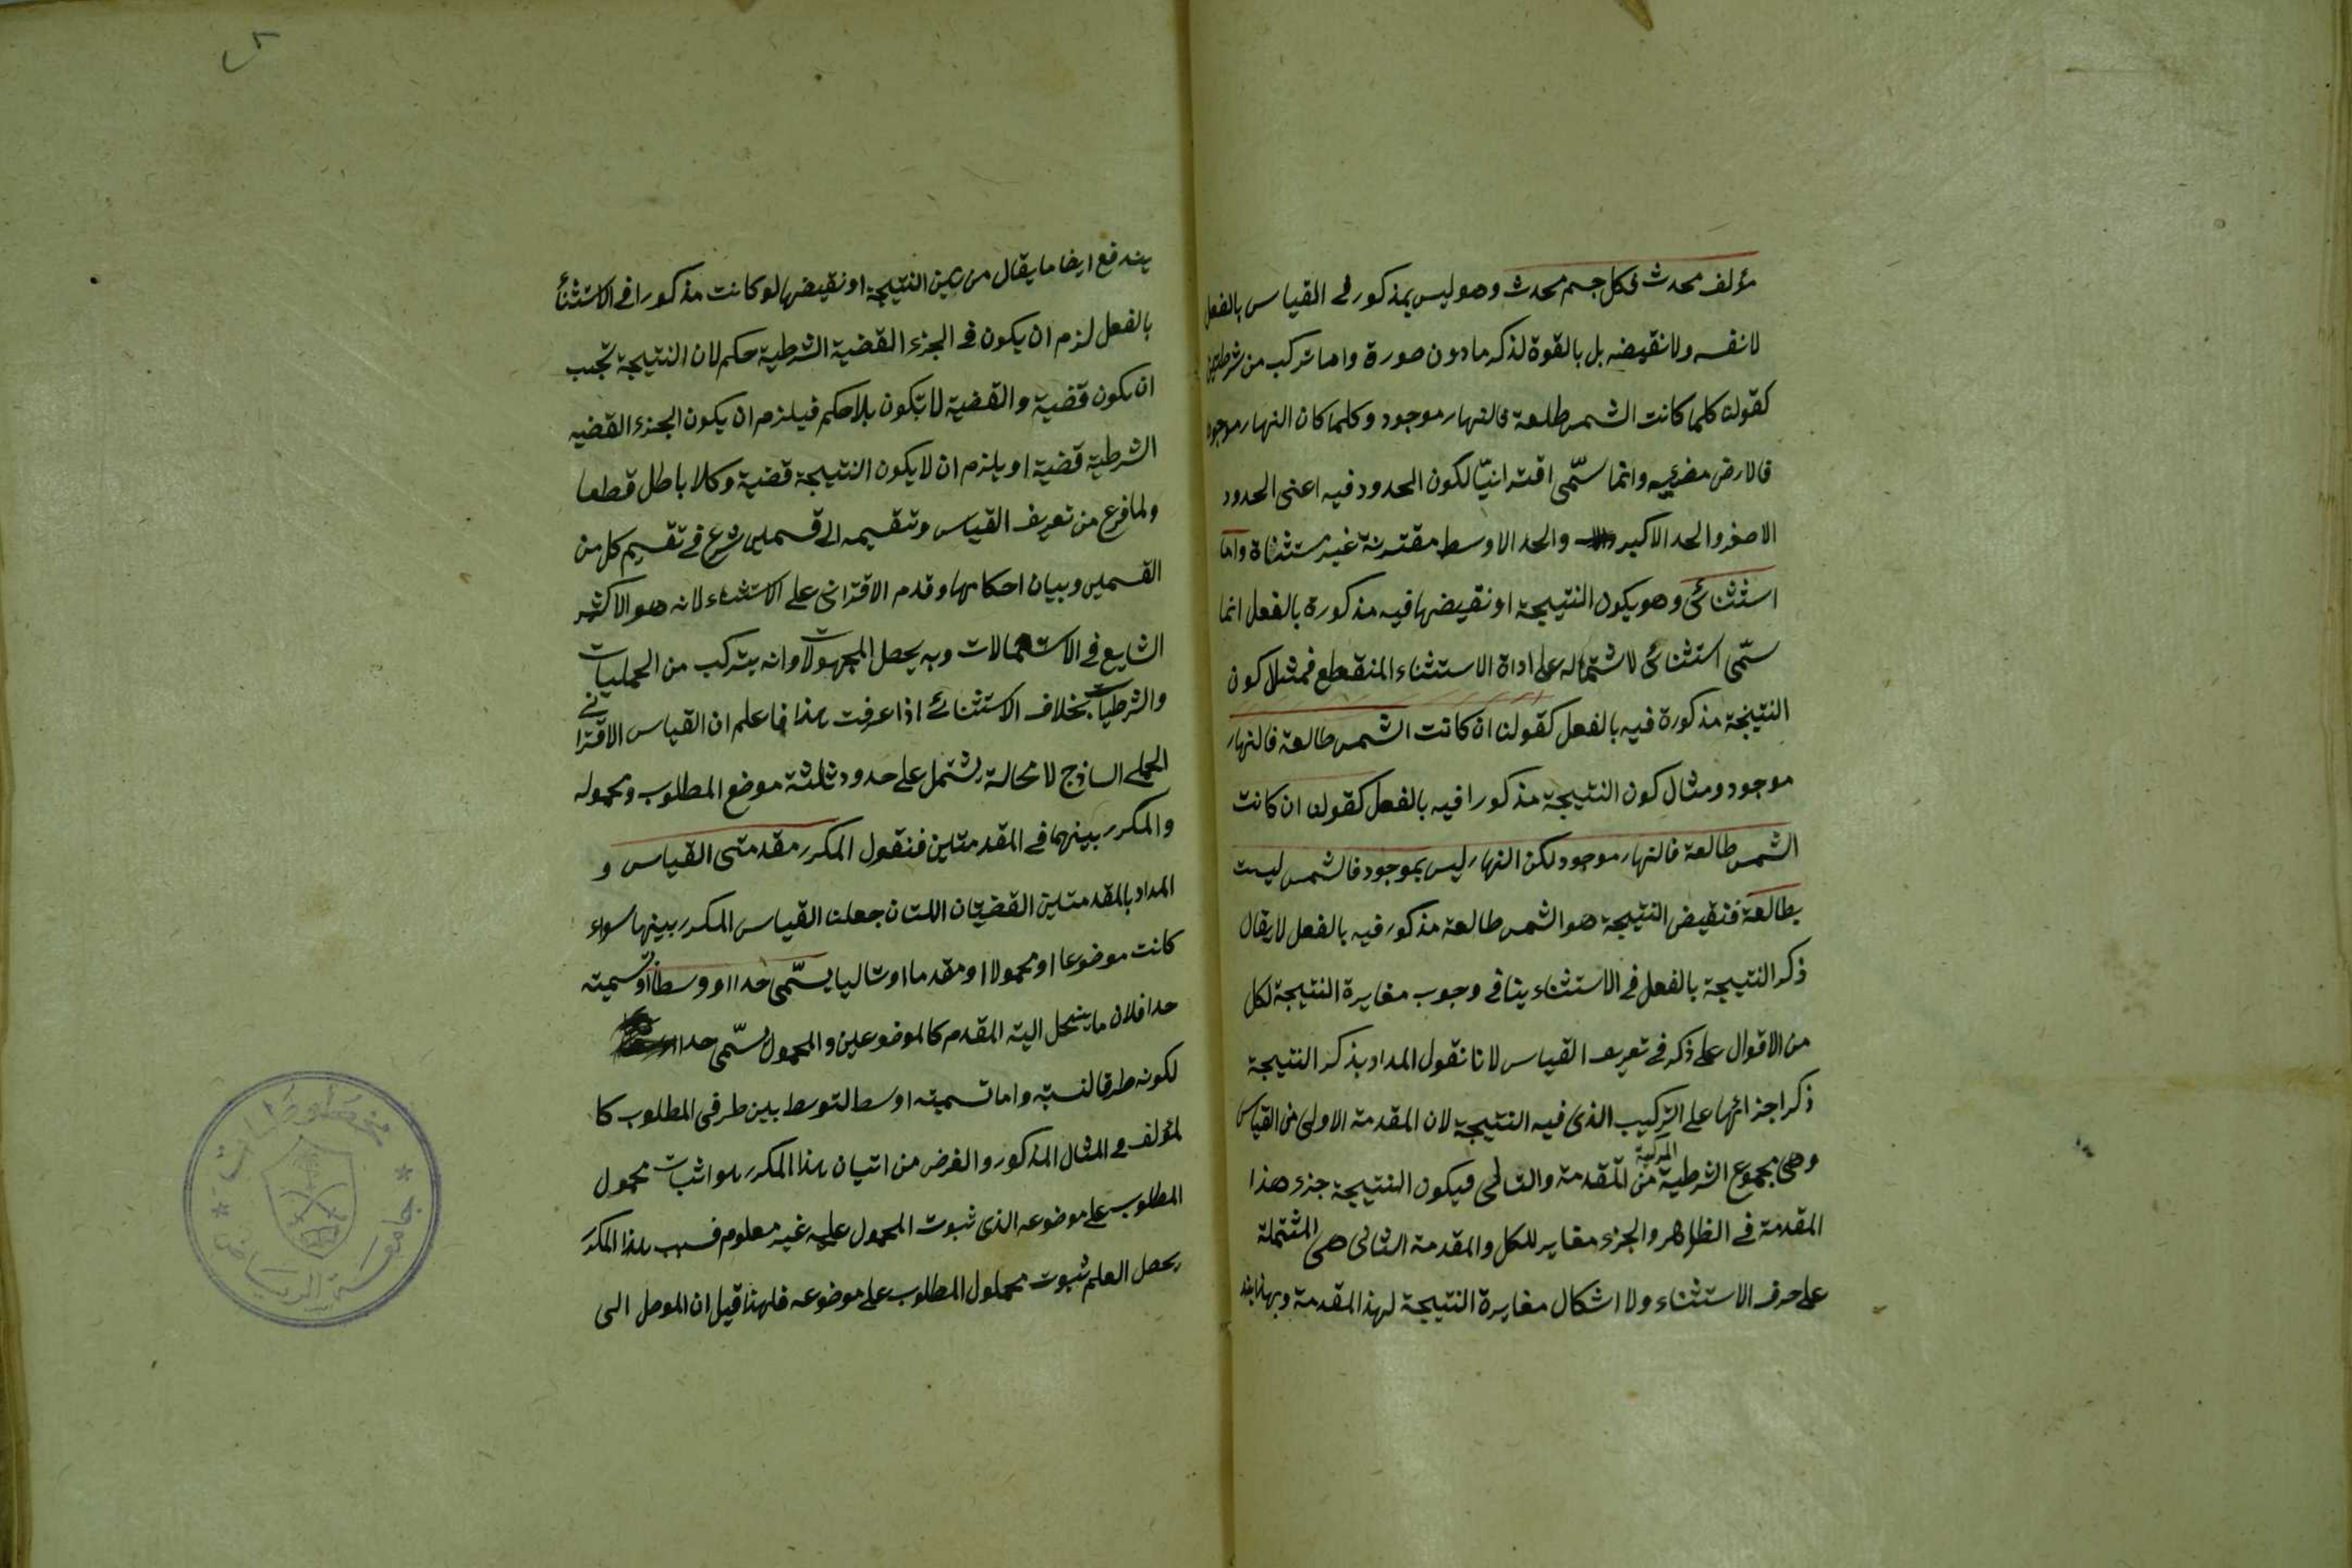 مؤلف محدث فكل جسم محدث وهو ليس بمذكور في القياس بالفعل
لا نفسه ولا نقيضه بل بالقوة لذكر مادون صورة واما تركب من شرطيتين
كقولنا كلما كانت الشمس طلعة فالنهار موجود وكلما كان النهار موجود
فالارض مضيئه وانما سمّى اقترانيّا لكون الحدود فيه اعنى الحدود
الاصغر والحد الاكبر والحد الاوسط مقترنة غير مستثناة واما
استثنائى وهو يكون النتيجة او نقيضها فيه مذكورة بالفعل انما
سمّى استثنائى لاشتماله على اداة الاستثناء المنقطع فمثلا كون
النتيجة مذكورة فيه بالفعل كقولنا ان كانت الشمس طالعة فالنهار
موجود ومثال كون النتيجة مذكورا فيه بالفعل كقولنا ان كانت
الشمس طالعة فالنهار موجود لكن النهار ليس بموجود فالشمس ليست
بطالعة فنقيض النتيجة هو الشمس طالعة مذكور فيه بالفعل لا يقال
ذكر النتيجة بالفعل في الاستثناء ينافي وجوب مغايرة النتيجة لكل
من الاقوال على ذكر في تعريف القياس لانا نقول المداد بذكر النتيجة
ذكر اجزائها على التركيب الذى فيه النتيجة لان المقدمة الاولى من القياس
وهى مجموع الشرطية المركبة من المقدمة والتالى فيكون النتيجة جزء هذا
المقدمة في الظاهر والجزء مغاير للكل والمقدمة الثانى هى المشتملة
على حرف الاستثناء ولا اشكال مغايرة النتيجة لهذا المقدمة وبهذا
يندفع ايضا ما يقال من عين النتيجة او نقيضها لو كانت مذكورا في الاستثنأ
بالفعل لزم ان يكون في الجزء القضية الشرطية حكم لان النتيجة تجب
ان يكون قضية والقضية لا تكون بلا حكم فيلزم ان يكون الجزء القضيه
الشرطية قضية او يلزم ان لا يكون النتيجة قضية وكلا باطل قطعا
ولما فرغ من تعريف القياس وتقيمه الى قسملين شرع في تقسيم كل من
القسملين وبيان احكامها وقدم الاقترانى على الاستثناء لانه هو الاكثر
الشايع في الاستعمالات وبه يحصل المجهولات وانه يتركب من الحمليات
والشرطيات بخلاف الاستثنائى اذا عرفت هذا فاعلم ان القياس الاقترانى
الحملى الساذج لا محالة يشتمل على حدود ثلثة موضع المطلوب ومحموله
والمكرر بينهما في المقدمتين فنقول المكرر مقدمتى القياس و
المداد بالمقدمتين القضيتان اللتان جعلنا القياس المكرر بينها سواء
كانت موضوعا او محمولا او مقدما او تاليا يسمّى حدا اووسطا وتسميته
حدا فلان ما ينحل اليه المقدم كالموضوعين والمحمول يسمّى حدا
لكونه طرفا لنسبة واما تسميته اوسط لتوسط بين طرفى المطلوب كا
لمؤلف في المثال المذكور والغرض من اتيان هذا المكرر هو اثبات محمول
المطلوب على موضوعه الذى ثبوت المحمول عليه غير معلوم فسبب هذا المكرر
يحصل العلم ثبوت محملول المطلوب على موضوعه فلهذا قيل ان الموصل الى
مخطوطات
جامعة الرياض